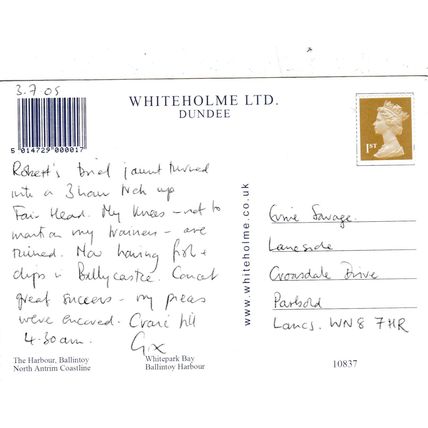 3.7.05
WHITEHOLME LTD.
DUNDEE
5 014729 000017
1ST
Robert's brief jaunt turned
into a 3 hour trek up
Fair Head. My knees - not to
mention my trainers - are
ruined. Now having fish +
chips in Ballycastle. Concert
great success - my pieces
were encored. Craic till
4.30am.
www.whiteholme.co.uk
Savage.
Laneside
Croasdale Drive
Parbold
Lancs. WN8 7HR
The Harbour, Ballintoy
North Antrim Coastline
Whitepark Bay
Ballintoy Harbour
10837